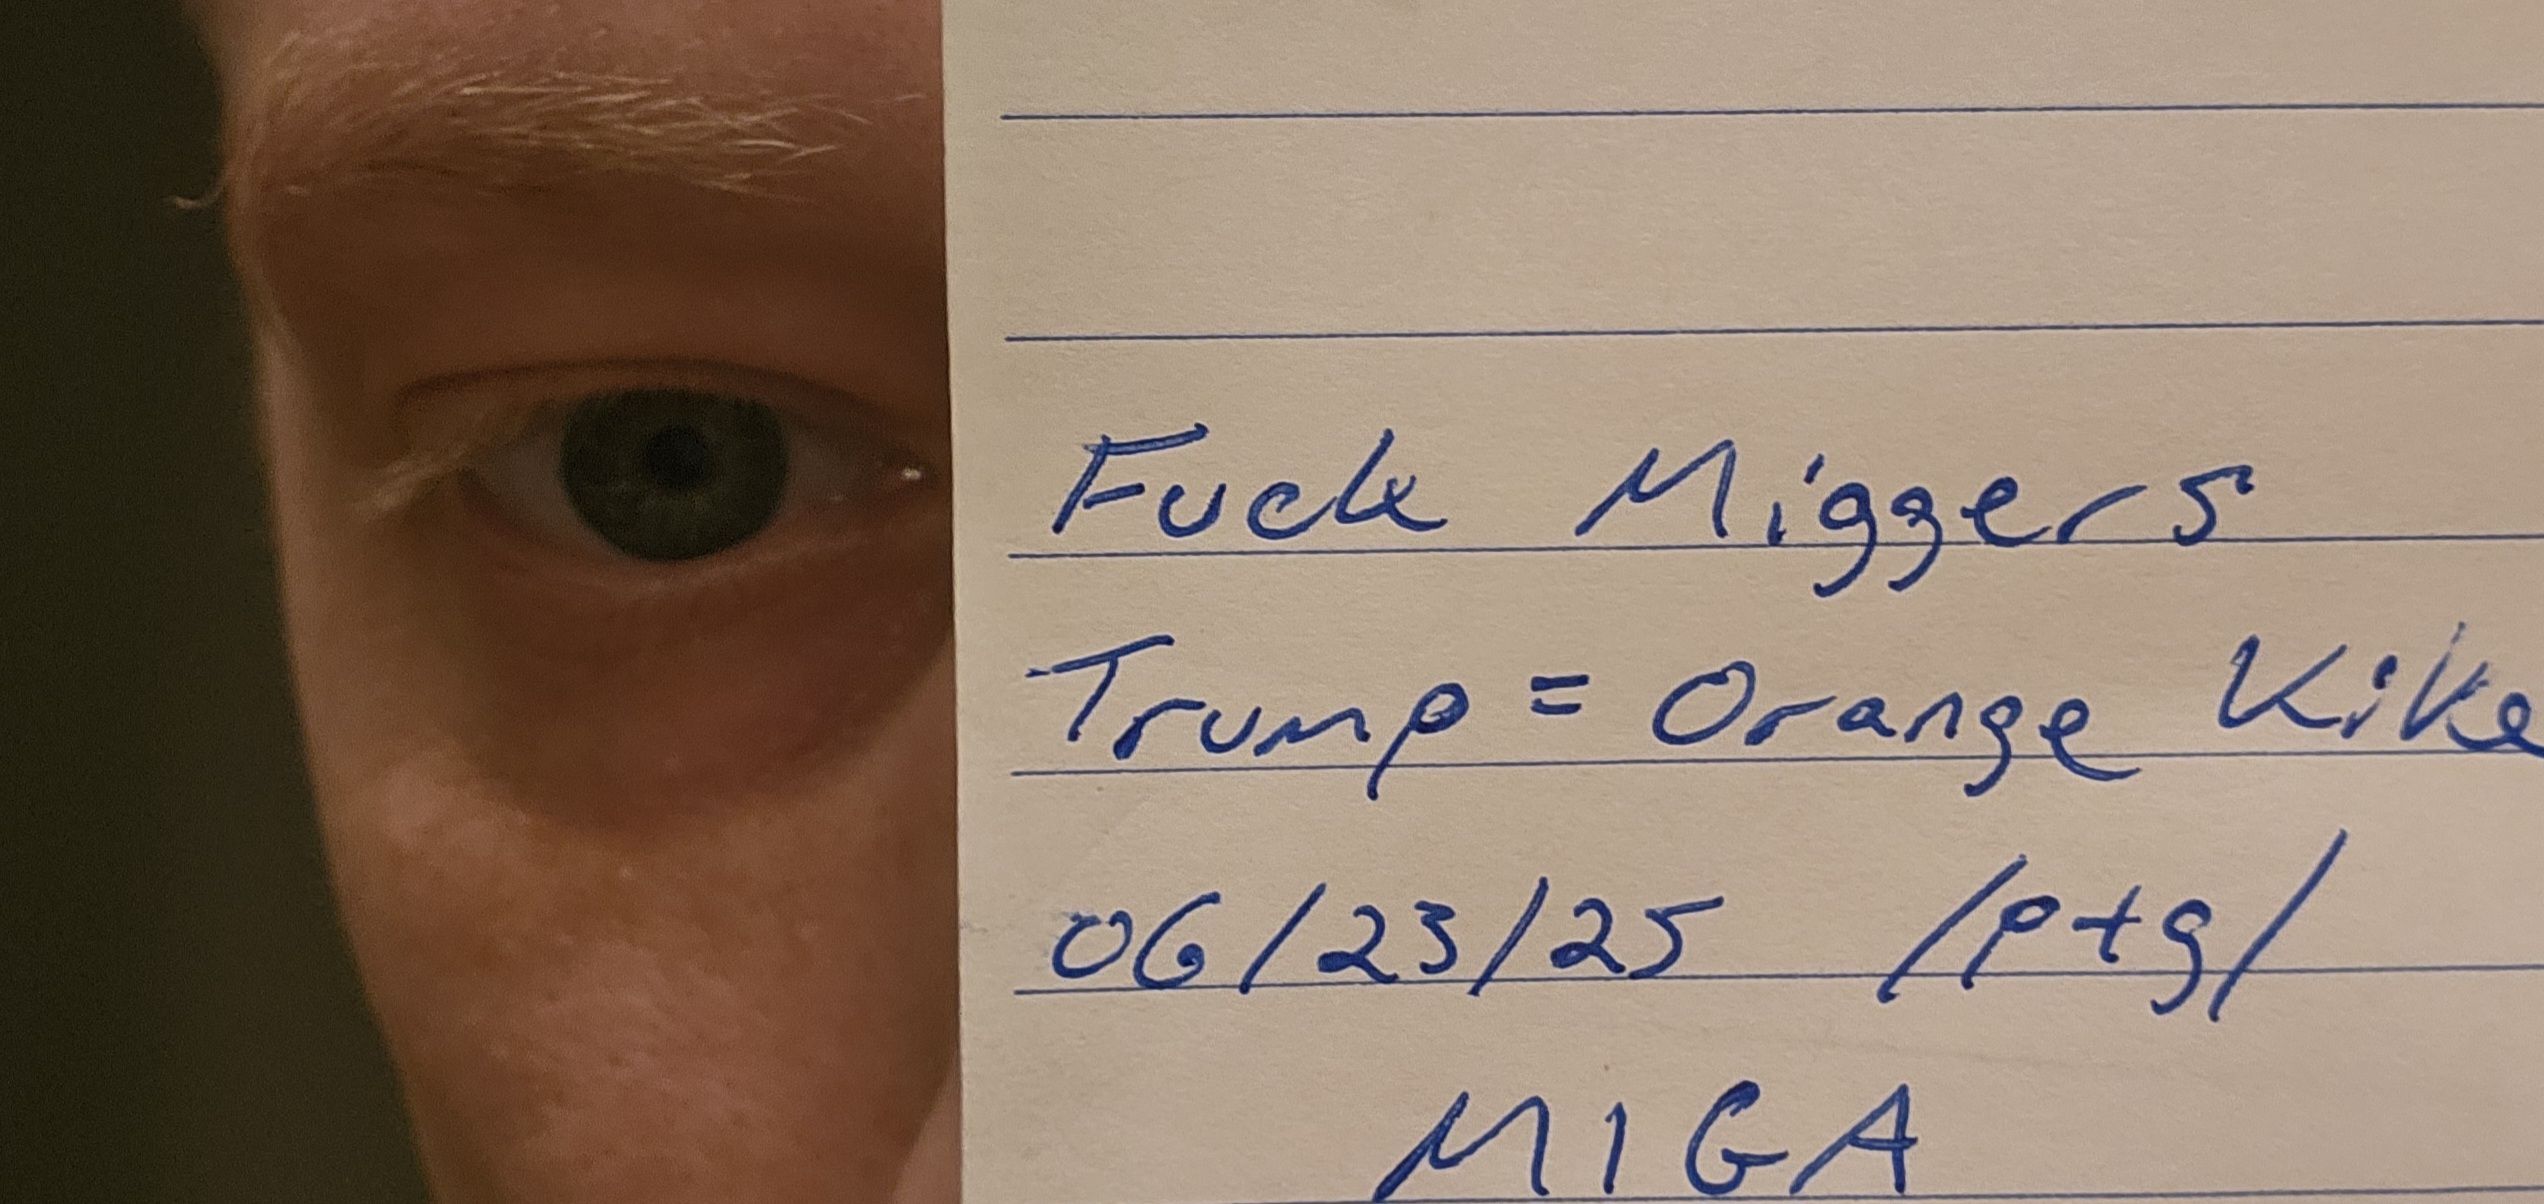 Fuck Miggers
Trump = Orange Kike
06/23/25 /ptg/
MIGA